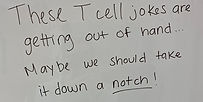 These T cell jokes are
getting out of hand...
Maybe we should take
it down a notch!